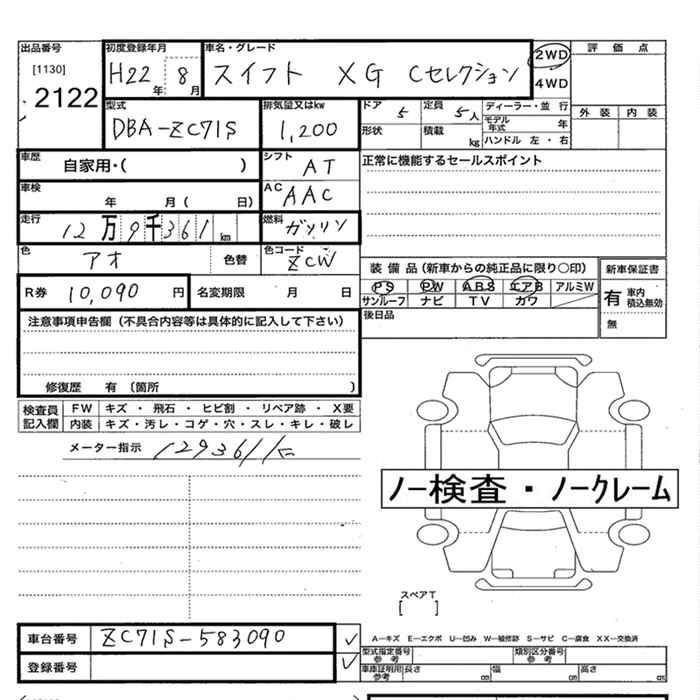 出品番号 初度登録年月 車名・グレード 2WD 評 価 点
[1130] H22 年 8 月 スイフト XG Cセレクション 4WD
2122 型式 排気量又はkw ドア 5 定員 5人 ディーラー・並 行 外 装 内 装
DBA-ZC71S 1,200 形状 積載 kg モデル年式 年
ハンドル 左・右
車歴 自家用・( ) シフト AT 正常に機能するセールスポイント
車検 年 月 ( 日) AC AAC
走行 12万9千361 km 燃料 ガソリン
色 アオ 色替 色コード ZCW
装 備 品 (新車からの純正品に限り○印) 新車保証書
R券 10,090 円 名変期限 月 日 PS PW ABS エアB アルミW 有 車内積込無効
サンルーフ ナビ TV カワ 無
注意事項申告欄 (不具合内容等は具体的に記入して下さい) 後日品
修復歴 有 (箇所 )
検査員記入欄 FW キズ ・ 飛石 ・ ヒビ割 ・ リペア跡 ・ X要
内装 キズ・汚レ・コゲ・穴・スレ・キレ・破レ
メーター指示 129361 K
ノー検査・ノークレーム
スペアT
[ ]
車台番号 ZC71S-583090 ✓ A—キズ E—エクボ U—凹み W—補修跡 S—サビ C—腐食 XX—交換済
型式指定番号 参考 類別区分番号 参考
登録番号 ✓ 車庫証明用 参考 長さ cm 幅 cm 高さ cm